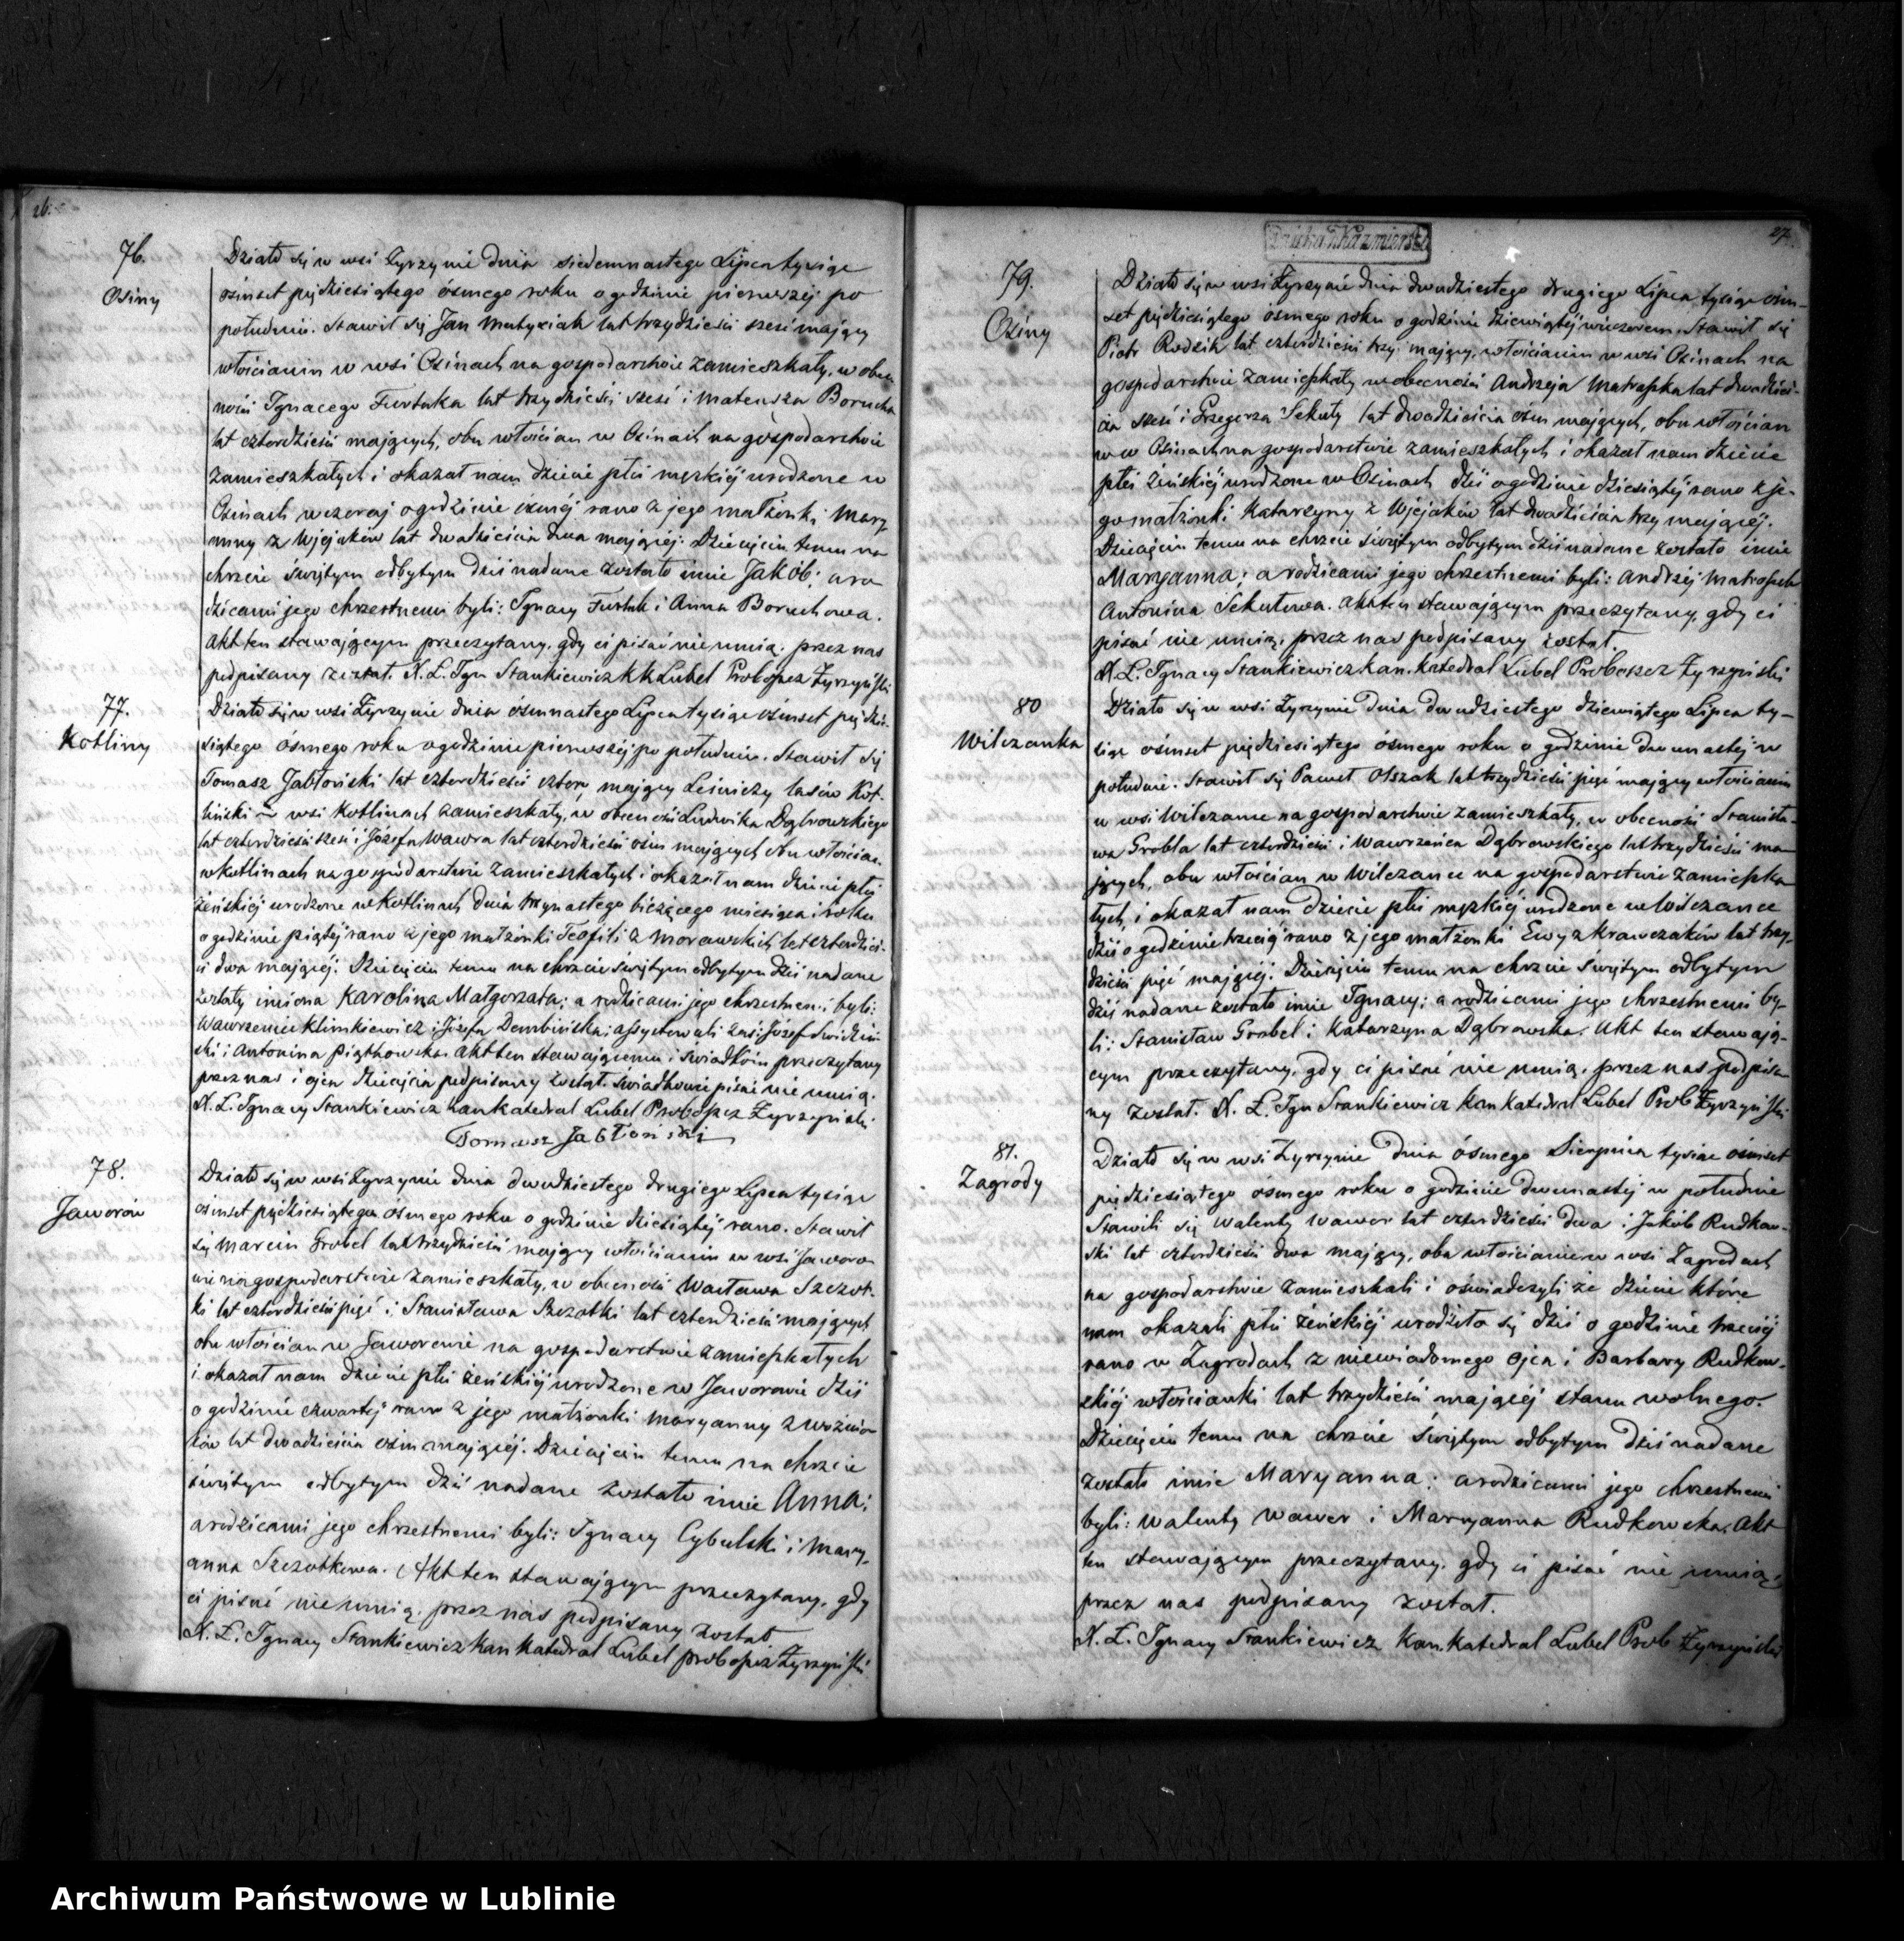 26.
76.
Osiny
Działo się w wsi Żyrzynie dnia siedemnastego Lipca tysiąc
ośmset pięćdziesiątego ósmego roku o godzinie pierwszej po
południu. Stawił się Jan Matysiak lat trzydzieści sześć mający
włościanin w wsi Osinach na gospodarstwie zamieszkały, w obec
ności Ignacego Furtaka lat trzydzieści sześć i Mateusza Borucha
lat czterdzieści mających, obu włościan w Osinach na gospodarstwie
zamieszkałych i okazał nam dziecie płci męzkiéj urodzone w
Osinach wczoraj o godzinie ósméj rano z jego małżonki Mary
anny z Wjejaków lat dwadzieścia dwa mającéj. Dziecięciu temu na
chrzcie świętym odbytym dziś nadane zostało imie Jakób; a ro
dzicami jego chrzestnemi byli: Ignacy Furtak i Anna Boruchowa.
Akt ten stawającym przeczytany, gdy ci pisać nie umią, przez nas
podpisany został. X. L. Ign Stankiewicz KK Lubel Proboszcz Żyrzyński
77.
Kotliny
Działo się w wsi Żyrzynie dnia ósmnastego Lipca tysiąc ośmset pięćdzie-
siątego ósmego roku o godzinie pierwszéj po południu. Stawił się
Tomasz Jabłoński lat czterdzieści cztery mający Leśniczy lasów Kot-
lińskich w wsi Kotlinach zamieszkały, w obecności Ludwika Dąbrowskiego
lat czterdzieści sześć i Józefa Wawra lat czterdzieści ośm mających obu włościan
w Kotlinach na gospodarstwie zamieszkałych i okazał nam dziecie płci
żeńskiéj urodzone w Kotlinach dnia trzynastego bieżącego miesiąca i roku
o godzinie piątéj rano z jego małżonki Teofili z Morawskich lat czterdzieś-
ci dwa mającéj. Dziecięciu temu na chrzcie świętym odbytym dziś nadane
zostały imiona Karolina Małgorzata; a rodzicami jego chrzestnemi byli:
Wawrzeniec Klimkiewicz i Józefa Dembińska; assystowali zaś: Józef Świdziń-
ski i Antonina Piątkowska. Akt ten stawającemu i świadkom przeczytany
przez nas i ojca dziecięcia podpisany został. Świadkowie pisać nie umią.
X. L. Ignacy Stankiewicz Kan Katedral Lubel Proboszcz Żyrzyński.
Tomasz Jabłoński
78.
Jaworów
Działo się w wsi Żyrzynie dnia dwudziestego drugiego Lipca tysiąc
ośmset pięćdziesiątego ósmego roku o godzinie dziesiątéj rano. Stawił
się Marcin Grobel lat trzydzieści mający włościanin w wsi Jaworo-
wie na gospodarstwie zamieszkały, w obecności Wacława Szczot-
ki lat czterdzieści pięć i Stanisława Szczotki lat czterdzieści mających
obu włościan w Jaworowie na gospodarstwie zamieszkałych
i okazał nam dziecie płci żeńskiéj urodzone w Jaworowie dziś
o godzinie czwartéj rano z jego małżonki Maryanny z Woźnia-
ków lat dwadzieścia ośm mającéj. Dziecięciu temu na chrzcie
świętym odbytym dziś nadane zostało imie Anna;
a rodzicami jego chrzestnemi byli: Ignacy Cybulski i Mary-
anna Szczotkowa. Akt ten stawającym przeczytany, gdy
ci pisać nie umią, przez nas podpisany został
X. L. Ignacy Stankiewicz Kan Katedral Lubel Proboszcz Żyrzyński
27.
79.
Osiny
Działo się w wsi Żyrzynie dnia dwudziestego drugiego Lipca tysiąc ośm-
set pięćdziesiątego ósmego roku o godzinie dziewiątéj wieczorem. Stawił się
Piotr Rodzik lat czterdzieści trzy mający, włościanin w wsi Osinach na
gospodarstwie zamieszkały w obecności Andrzeja Matraszka lat dwadzieś-
cia sześć i Grzegorza Sekuły lat dwadzieścia ośm mających, obu włościan
w w Osinach na gospodarstwie zamieszkałych i okazał nam dziecie
płci żeńskiéj urodzone w Osinach dziś o godzinie dziesiątéj rano z je-
go małżonki Katarzyny z Wjejaków lat dwadzieścia trzy mającéj.
Dziecięciu temu na chrzcie świętym odbytym dziś nadane zostało imie
Maryanna; a rodzicami jego chrzestnemi byli: Andrzéj Matraszek
Antonina Sekułowa. Akt ten stawającym przeczytany, gdy ci
pisać nie umią, przez nas podpisany został.
X. L. Ignacy Stankiewicz Kan. Katedral Lubel Proboszcz Żyrzyński
80
Wilczanka
Działo się w wsi Żyrzynie dnia dwudziestego dziewiątego Lipca ty-
siąc ośmset pięćdziesiątego ósmego roku o godzinie dwunastéj w
południe. Stawił się Paweł Olszak lat trzydzieści pięć mający włościanin
w wsi Wilczance na gospodarstwie zamieszkały, w obecności Stanisła-
wa Grobla lat czterdzieści i Wawrzeńca Dąbrowskiego lat trzydzieści ma-
jących, obu włościan w Wilczance na gospodarstwie zamieszka-
łych, i okazał nam dziecie płci męzkiéj urodzone w Wilczance
dziś o godzinie trzeciéj rano z jego małżonki Ewy z Krawczaków lat trzy-
dzieści pięć mającéj. Dziecięciu temu na chrzcie świętym odbytym
dziś nadane zostało imie Ignacy; a rodzicami jego chrzestnemi by-
li: Stanisław Grobel i Katarzyna Dąbrowska. Akt ten stawają-
cym przeczytany, gdy ci pisać nie umią, przez nas podpisa-
ny został. X. L. Ign Stankiewicz Kan Katedral Lubel Prob Żyrzyński
81.
Zagrody
Działo się w wsi Żyrzynie dnia ósmego Sierpnia tysiąc ośmset
pięćdziesiątego ósmego roku o godzinie dwunastéj w południe
Stawili się Walenty Wawer lat czterdzieści dwa i Jakób Rudkow-
ski lat czterdzieści dwa mający, oba włościanie w wsi Zagrodach
na gospodarstwie zamieszkali i oświadczyli że dziecie które
nam okazali płci żeńskiéj urodziło się dziś o godzinie trzeciéj
rano w Zagrodach z niewiadomego Ojca i Barbary Rudkow-
skiéj włościanki lat trzydzieści mającéj stanu wolnego.
Dziecięciu temu na chrzcie świętym odbytym dziś nadane
zostało imie Maryanna; a rodzicami jego chrzestnemi
byli: Walenty Wawer i Maryanna Rudkowska. Akt
ten stawającym przeczytany, gdy ci pisać nie umią,
przez nas podpisany został.
X. L. Ignacy Stankiewicz Kan. Katedral Lubel Prob Żyrzyński
Archiwum Państwowe w Lublinie